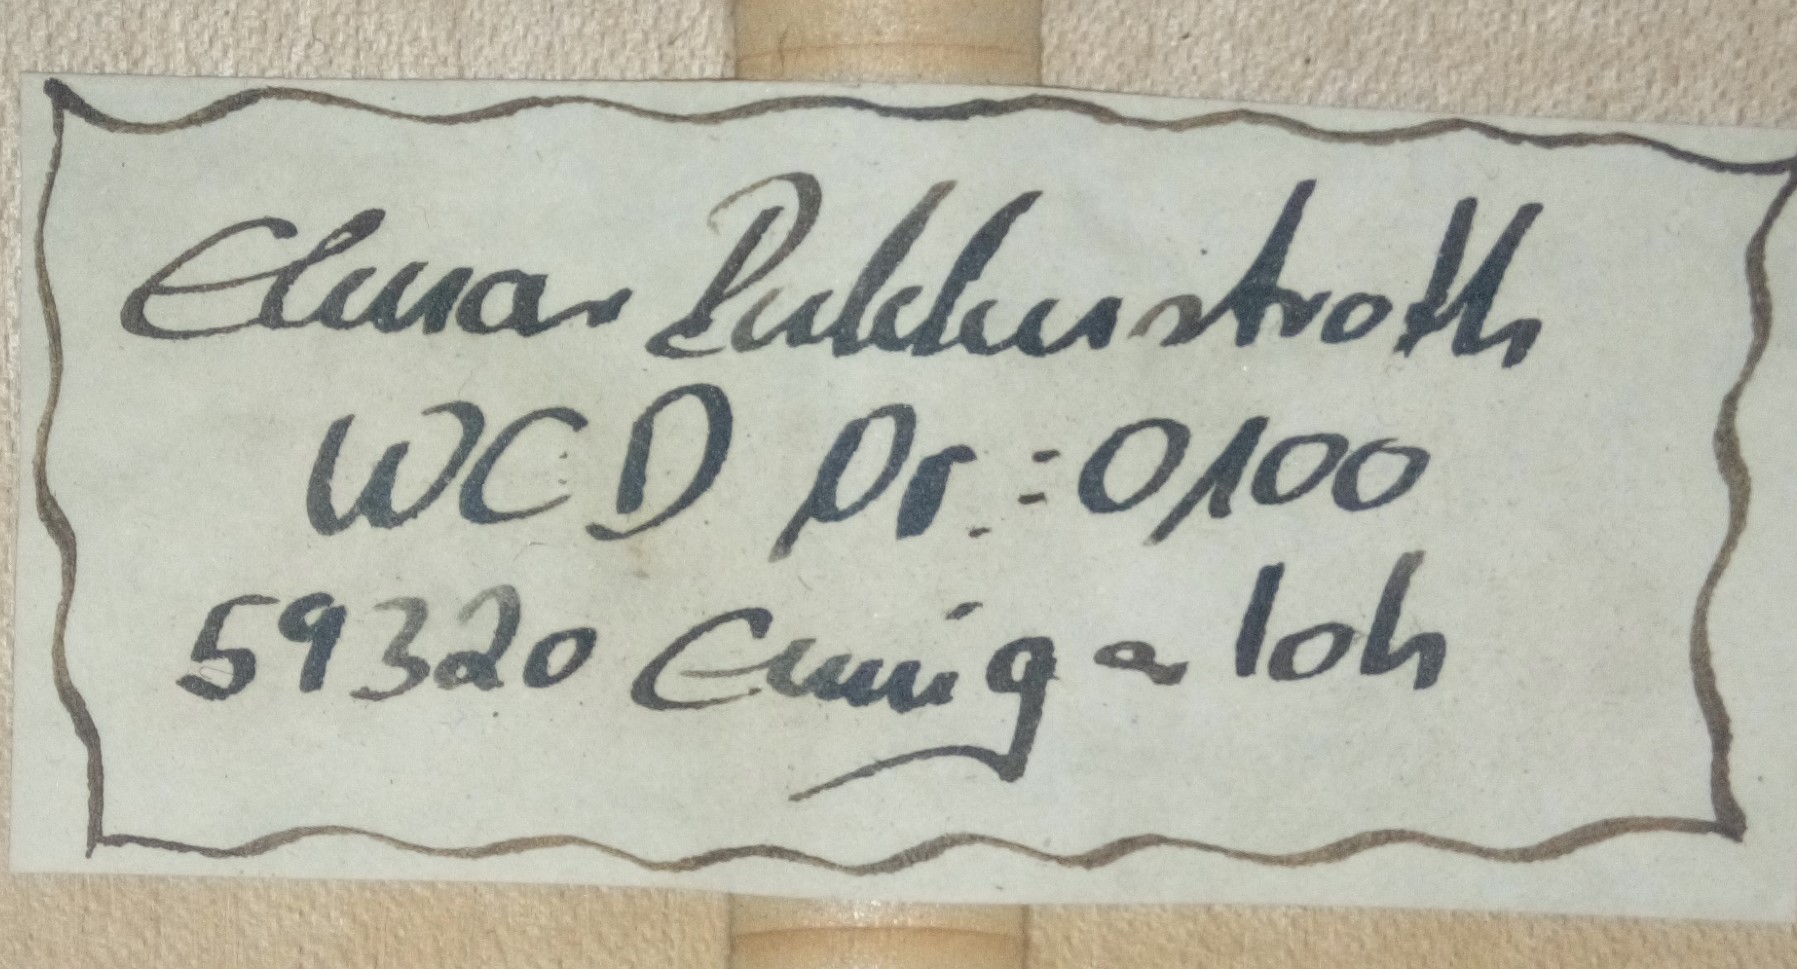 Elmar Pukkenstroth
WCD Nr.: 0100
59320 Ennigaloh